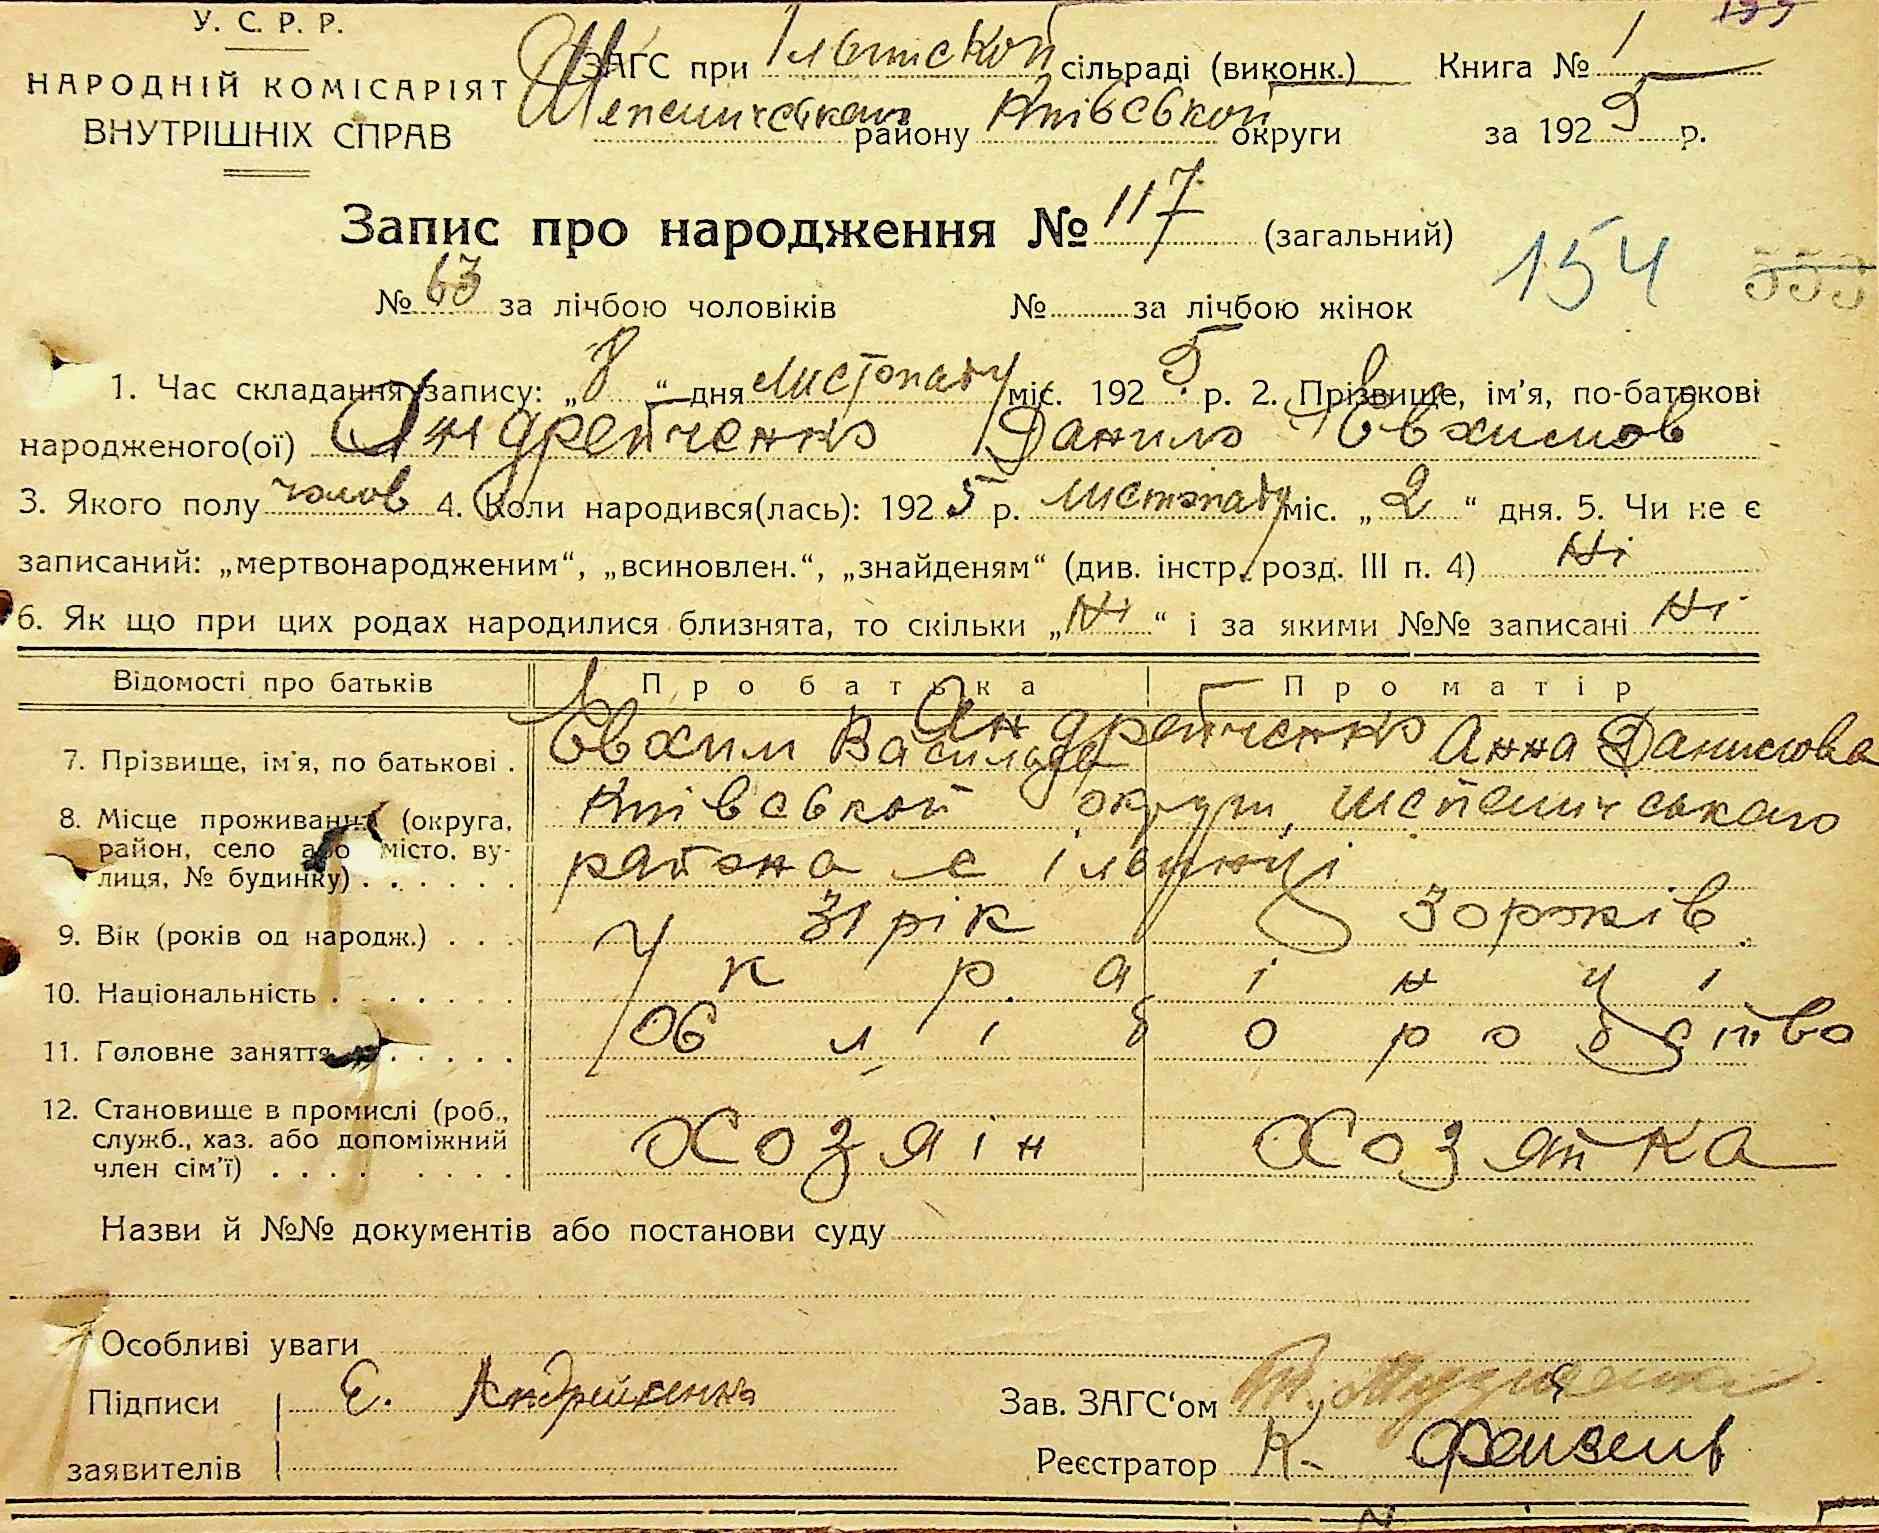 У. С. Р. Р.
НАРОДНІЙ КОМІСАРІЯТ
ВНУТРІШНІХ СПРАВ
ЗАГС при Ільинской сільраді (виконк.) Книга № 1
Шепеличського району Київської округи за 1925 р.
Запис про народження № 117 (загальний)
154
№ 63 за лічбою чоловіків № за лічбою жінок
1. Час складання запису: „8“ дня листопаду міс. 1925 р. 2. Прізвище, ім'я, по-батькові
народженого(ої) Андрейченко Данило Евхимов
3. Якого полу чолов 4. Коли народився(лась): 1925 р. листопаду міс. „2“ дня. 5. Чи не є
записаний: „мертвонародженим“, „всиновлен.“, „знайденям“ (див. інстр. розд. III п. 4) Ні
6. Як що при цих родах народилися близнята, то скільки „Ні“ і за якими №№ записані Ні
Відомості про батьків Про батька Про матір
Андрейченко
7. Прізвище, ім'я, по батькові . Евхим Васильов Анна Данилова
8. Місце проживання (округа, Київской округи, Шепеличського
район, село або місто, ву-
лиця, № будинку) . . . . . . района с Ільинці
9. Вік (років од народж.) . . . 31 рік 30 років
10. Національність . . . . . . . Українці
11. Головне заняття . . . . . . Хліборобство
12. Становище в промислі (роб.,
служб., хаз. або допоміжний Хозяін Хозяйка
член сім'ї) . . . . . . . . .
Назви й №№ документів або постанови суду
Особливі уваги
Підписи Є. Андрейченко Зав. ЗАГС'ом
заявителів Реєстратор К.